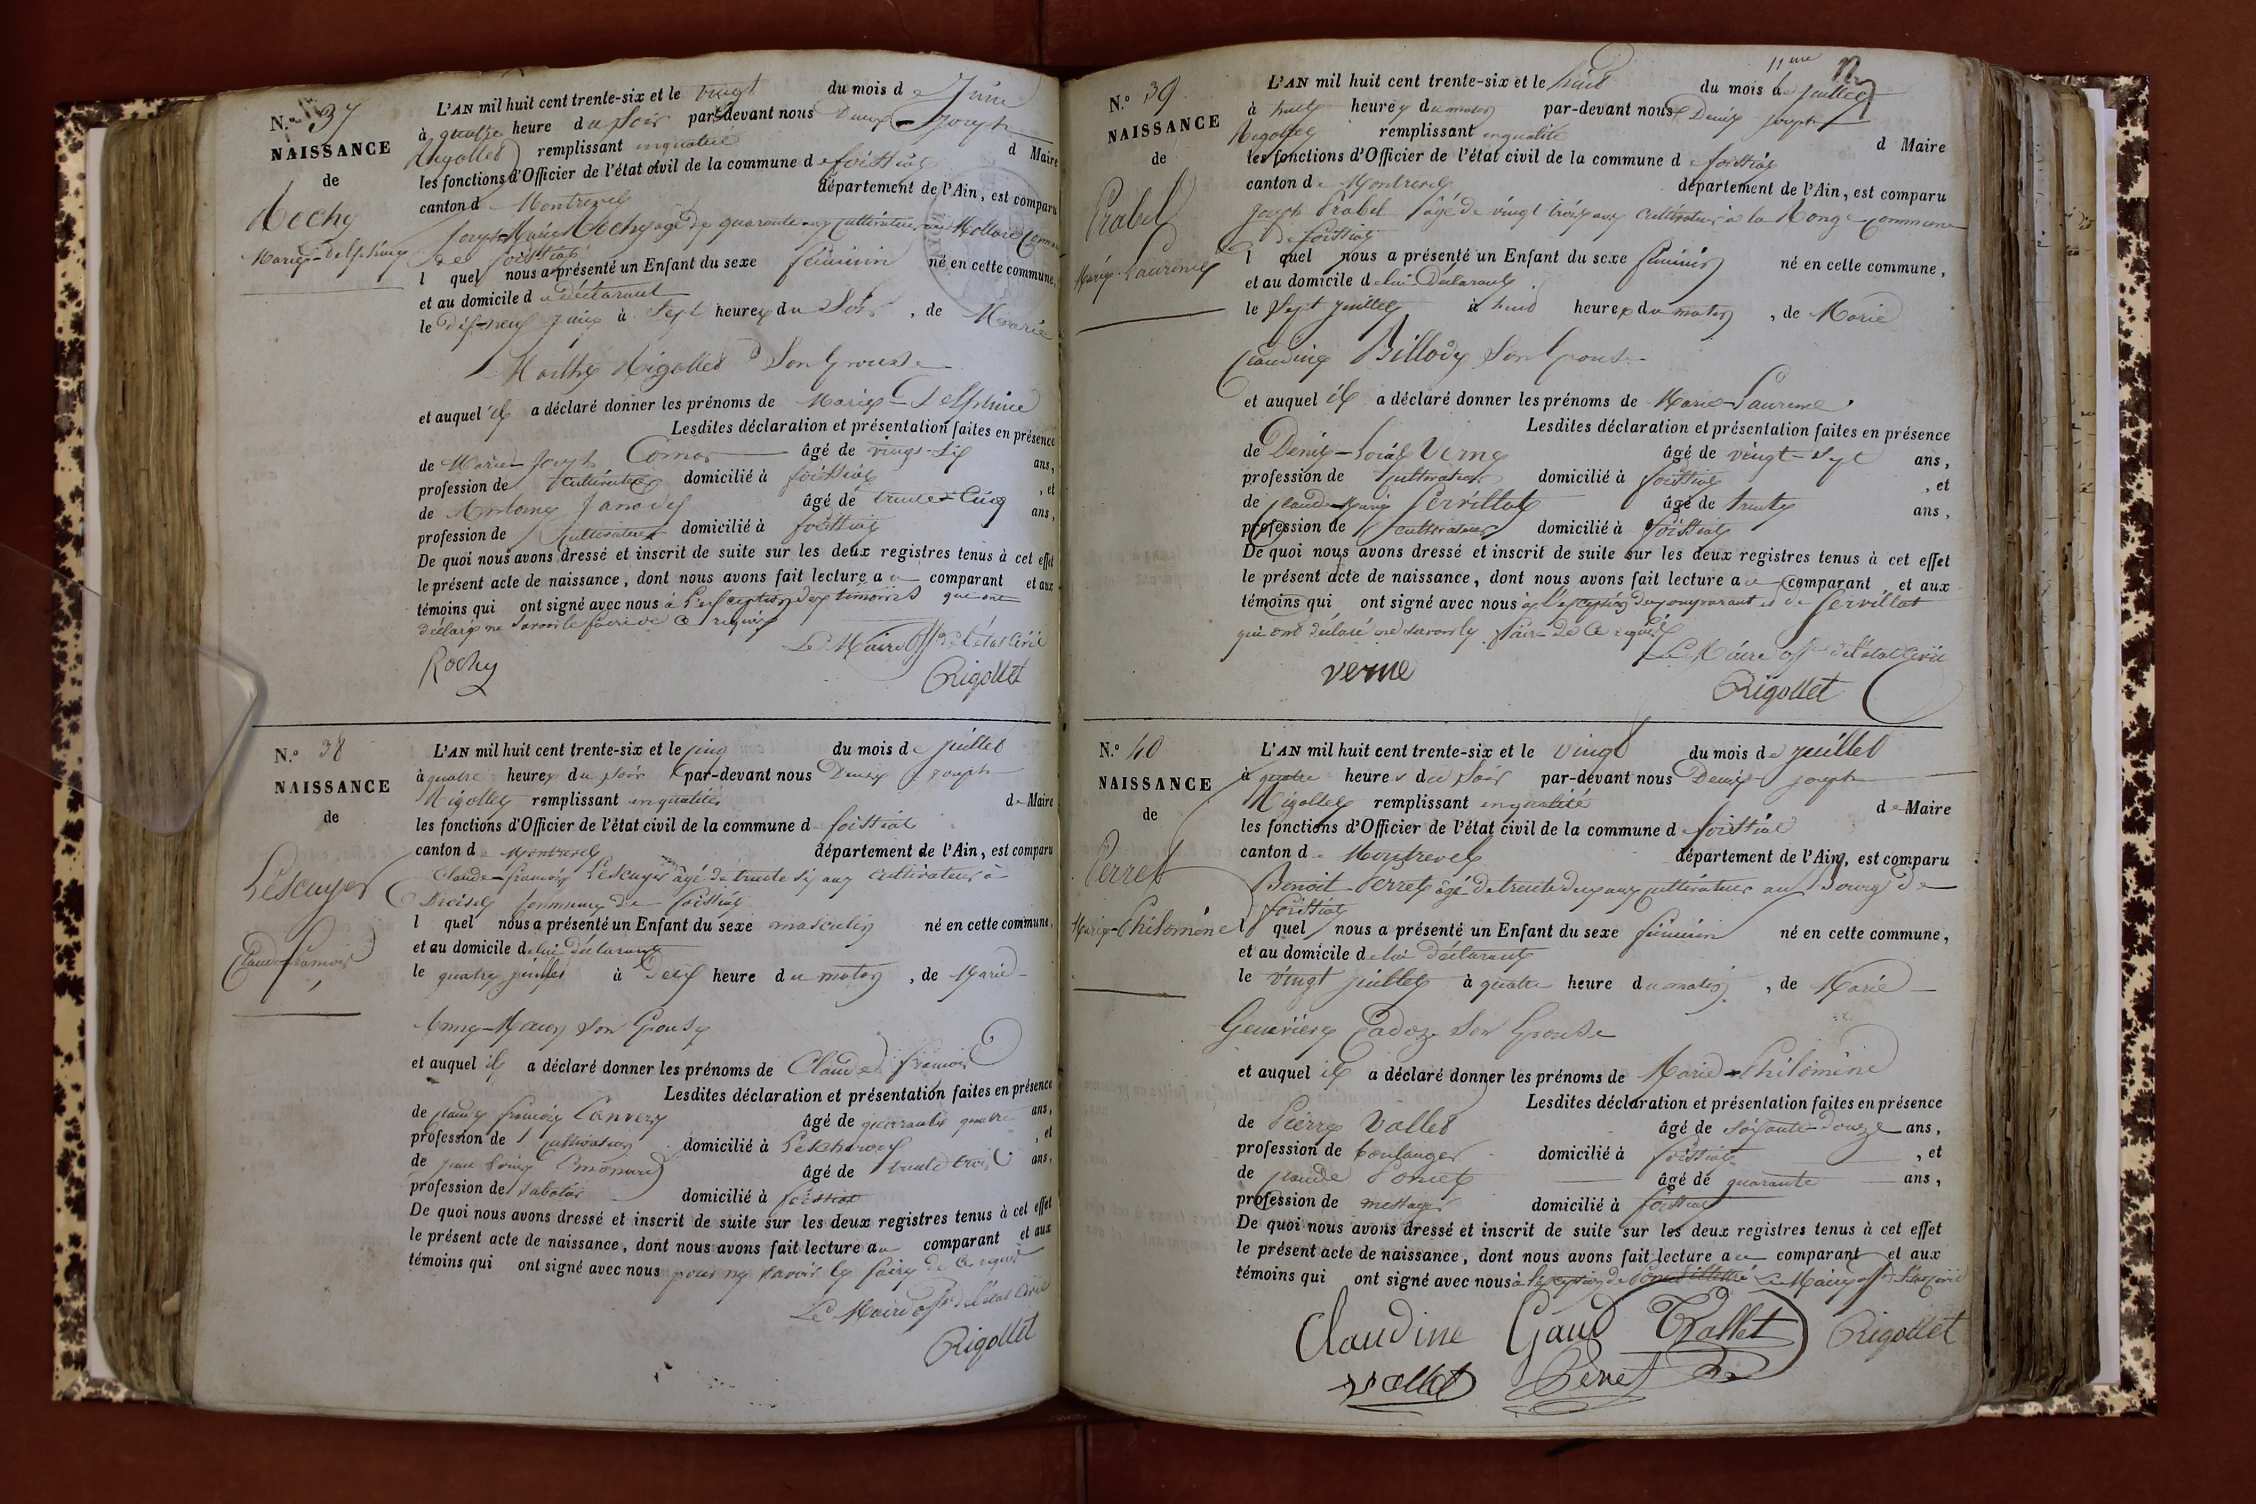 N.º 37
NAISSANCE
de
Rochy
Marie-Delphine
L'AN mil huit cent trente-six et le vingt du mois de Juin
à quatre heure du soir par-devant nous Denis Joseph
Rigollet remplissant en qualité d Maire
les fonctions d'Officier de l'état civil de la commune de foissiat
canton de Montrevel département de l'Ain, est comparu
Joseph Marie Rochy âgé de quarante ans cultivateur au Mollard Commune
de foissiat
l quel nous a présenté un Enfant du sexe féminin né en cette commune,
et au domicile du déclarant
le dix-neuf Juin à Sept heures du Soir, de Marie
Marthe Rigollet Son Epouse
et auquel il a déclaré donner les prénoms de Marie-Delphine
Lesdites déclaration et présentation faites en présence
de Marie-Joseph Comas âgé de vingt-six ans,
profession de Cultivateur domicilié à foissiat, et
de Antoine Janody âgé de trente-cinq ans,
profession de Cultivateur domicilié à foissiat
De quoi nous avons dressé et inscrit de suite sur les deux registres tenus à cet effet
le présent acte de naissance, dont nous avons fait lecture au comparant et aux
témoins qui ont signé avec nous à l'exception des témoins qui ont
déclaré ne savoir le faire de ce requis
Le Maire Off. de l'état Civil
Rochy Rigollet
N.º 38
NAISSANCE
de
Lescuyer
Claude-francois
L'AN mil huit cent trente-six et le cinq du mois de juillet
à quatre heures du soir par-devant nous Denis Joseph
Rigollet remplissant en qualité de Maire
les fonctions d'Officier de l'état civil de la commune d foissiat
canton de Montrevel département de l'Ain, est comparu
Claude-francois Lescuyer âgé de trente six ans cultivateur à
commune de foissiat
l quel nous a présenté un Enfant du sexe masculin né en cette commune,
et au domicile de lui déclarant
le quatre juillet à deux heure du matin, de Marie
Anne Son Epouse
et auquel il a déclaré donner les prénoms de Claude francois
Lesdites déclaration et présentation faites en présence
de Claude francois Convert âgé de quarante quatre ans,
profession de cultivateur domicilié à Lescheroux, et
de âgé de trente trois ans,
profession de Sabotier domicilié à foissiat
De quoi nous avons dressé et inscrit de suite sur les deux registres tenus à cet effet
le présent acte de naissance, dont nous avons fait lecture au comparant et aux
témoins qui ont signé avec nous pour ne savoir le faire de ce requis
Le Maire off. de l'état Civil
Rigollet
N.º 39
NAISSANCE
de
Prabel
Marie-Laurence
11me
L'AN mil huit cent trente-six et le huit du mois de juillet
à huit heures du matin par-devant nous Denis Joseph
Rigollet remplissant en qualité d Maire
les fonctions d'Officier de l'état civil de la commune de foissiat
canton de Montrevel département de l'Ain, est comparu
Joseph Prabel âgé de vingt trois ans cultivateur à la Ronge Commune
de foissiat
l quel nous a présenté un Enfant du sexe féminin né en cette commune,
et au domicile de lui Déclarant
le Sept juillet à huit heures du matin, de Marie
Claudine Billoud Son Epouse
et auquel il a déclaré donner les prénoms de Marie-Laurence
Lesdites déclaration et présentation faites en présence
de Denis-Louis Verne âgé de vingt-sept ans,
profession de Cultivateur domicilié à foissiat, et
de Claude-Marie Servillat âgé de trente ans,
profession de cultivateur domicilié à foissiat
De quoi nous avons dressé et inscrit de suite sur les deux registres tenus à cet effet
le présent acte de naissance, dont nous avons fait lecture au comparant et aux
témoins qui ont signé avec nous à l'exception du comparant et de Servillat
qui ont déclaré ne savoir le faire de ce requis
Le Maire off. de l'état Civil
verne Rigollet
N.º 40
NAISSANCE
de
Perret
Marie-Philomène
L'AN mil huit cent trente-six et le vingt du mois de juillet
à quatre heures du soir par-devant nous Denis Joseph
Rigollet remplissant en qualité de Maire
les fonctions d'Officier de l'état civil de la commune d foissiat
canton de Montrevel département de l'Ain, est comparu
Benoit Perret âgé de trente deux ans cultivateur au Bourg de
foissiat
l quel nous a présenté un Enfant du sexe féminin né en cette commune,
et au domicile de lui Déclarant
le vingt juillet à quatre heure du matin, de Marie
Genevieve Cadoz Son Epouse
et auquel il a déclaré donner les prénoms de Marie-Philomène
Lesdites déclaration et présentation faites en présence
de Pierre Vallet âgé de soixante-douze ans,
profession de boulanger domicilié à foissiat, et
de Claude Poncet âgé de quarante ans,
profession de messager domicilié à foissiat
De quoi nous avons dressé et inscrit de suite sur les deux registres tenus à cet effet
le présent acte de naissance, dont nous avons fait lecture au comparant et aux
témoins qui ont signé avec nous à l'exception de Poncet illettré Le Maire off. de l'état civil
Claudine Gaud Vallet Rigollet
vallet Perret